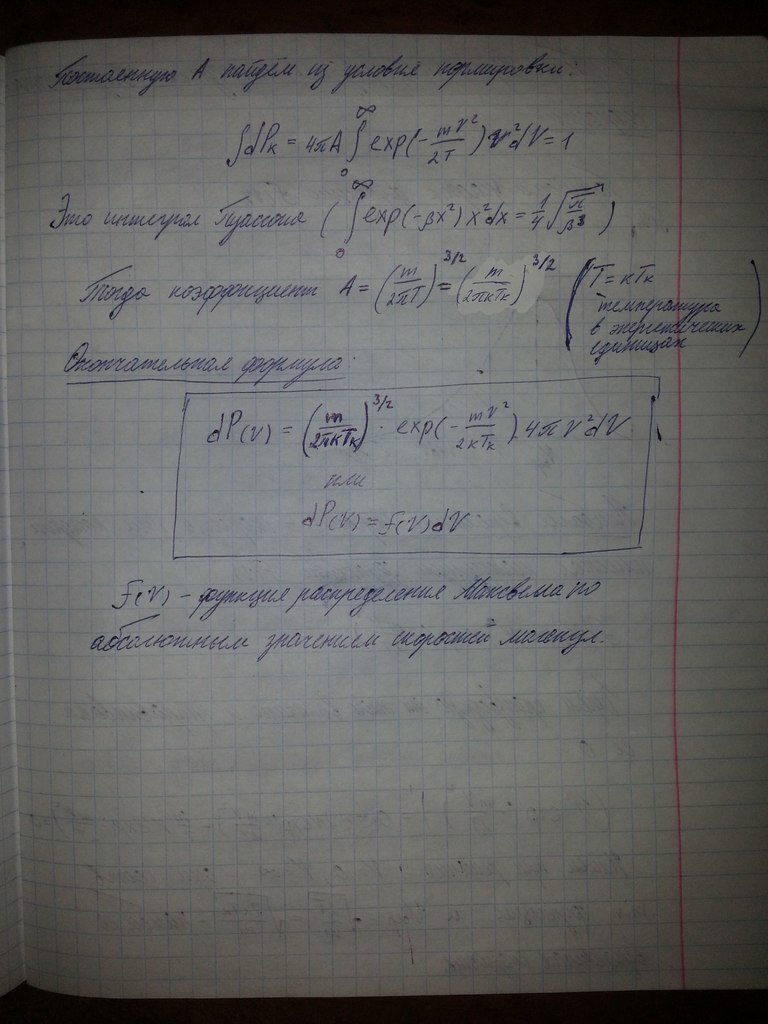 Постоянную A найдём из условия нормировки:
∫dPк = 4πA ∫₀^∞ exp(-mV²/2T) V²dV = 1
Это интеграл Пуассона (∫₀^∞ exp(-βx²) x²dx = 1/4 √(π/β³))
Тогда коэффициент A = (m/2πT)^3/2 = (m/2πkTк)^3/2 (T = kTк
температура
в энергетических
единицах)
Окончательная формула:
dP(V) = (m/2πkTк)^3/2 · exp(-mV²/2kTк) 4πV²dV
или
dP(V) = f(V)dV
f(V) – функция распределения Максвелла по
абсолютным значением скоростей молекул.